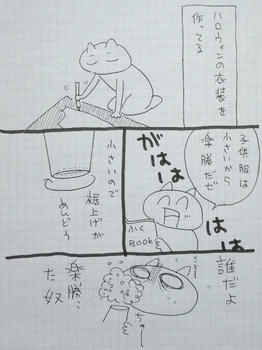 ハロウィンの衣装を
作ってる
子供服は
小さいから
楽勝だぜ
がはは
はは
ふく
BOOK
小さいので
裾上げが
めんどう
誰だよ
楽勝…
た奴
ちゅー